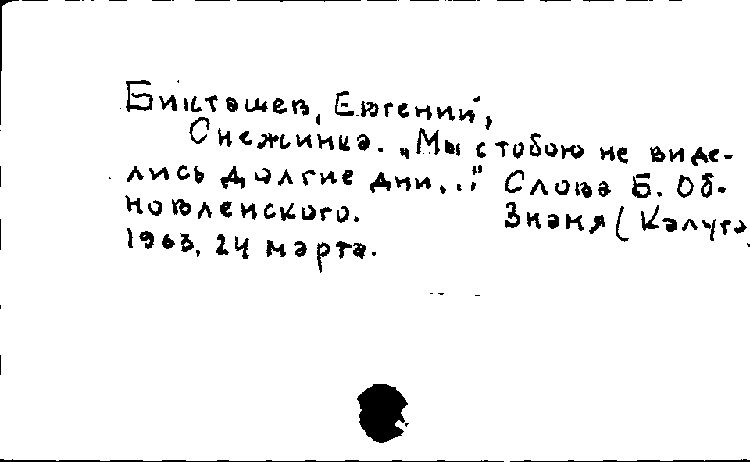 Бикташев, Евгений,
Снежинка. „Мы с тобою не виде-
лись долгие дни..." Слова Б. Об-
новленского. Знамя (Калуга)
1963, 24 марта.